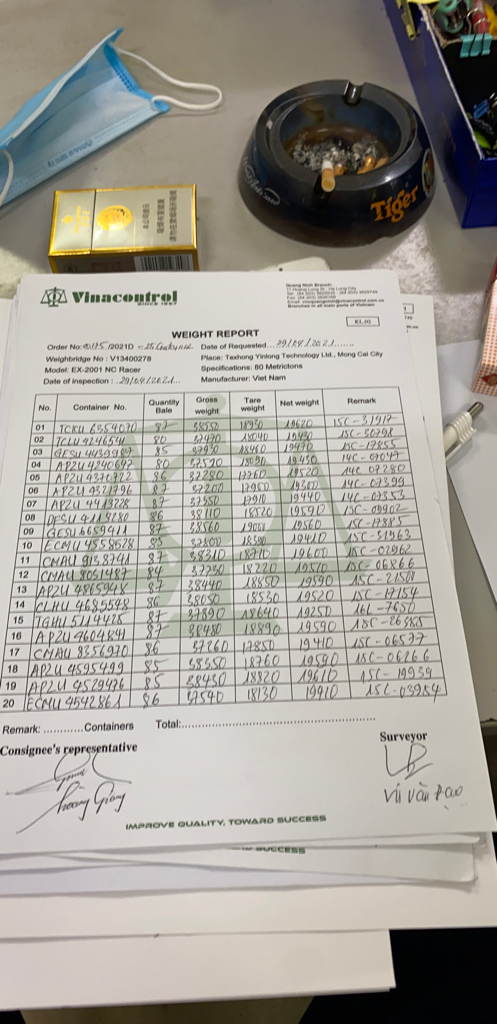 Tiger
Vinacontrol
SINCE 1957
Quang Ninh Branch:
KL.02
WEIGHT REPORT
Order No: /2021D Date of Requested 29/04/2021
Weighbridge No : V13400278 Place: Texhong Yinlong Technology Ltd., Mong Cai City
Model: EX-2001 NC Racer Specifications: 80 Metrictons
Date of inspection : 29/04/2021 Manufacturer: Viet Nam
No. Container No. Quantity Bale Gross weight Tare weight Net weight Remark
01 TCKU 6354070 87 38550 18930 19620 15C-31917
02 TCLU 4246541 80 37470 18040 19430 15C-30798
03 GESU 4439987 85 37930 18460 19470 15C-17855
04 AP2U 4240647 80 37520 18090 19430 14C-07047
05 AP2U 4370722 86 37280 17760 19520 14C 07280
06 AP2U 4321796 87 37200 17900 19300 14C-07399
07 AP2U 4413228 87 37350 17910 19440 14C-07553
08 86 38110 18520 19590 15C-09902
09 GESU 6659411 87 38560 19000 19560 15C-17885
10 ECMU 4558528 85 37800 18390 19410 15C-31963
11 CMAU 9138741 87 38310 18710 19600 15C-02962
12 CMAU 8051487 84 37730 18220 19510 15C-06866
13 AP2U 4865948 87 38440 18850 19590 15C-21500
14 CLHU 4685548 86 38050 18530 19520 15C-17154
15 TGHU 5114425 87 37890 18640 19250 16L-7650
16 AP2U 4604841 87 38480 18890 19590 15C-26385
17 CMAU 8356970 86 37260 17850 19410 15C-06577
18 AP2U 4595499 85 38350 18760 19590 15C-06266
19 AP2U 4529476 85 38430 18820 19610 15C-19939
20 ECMU 4542861 86 37540 18130 19410 15C-03954
Remark: ............Containers Total:
Consignee's representative Surveyor
Hoàng Giang Vũ Văn Đạo
IMPROVE QUALITY, TOWARD SUCCESS
SUCCESS